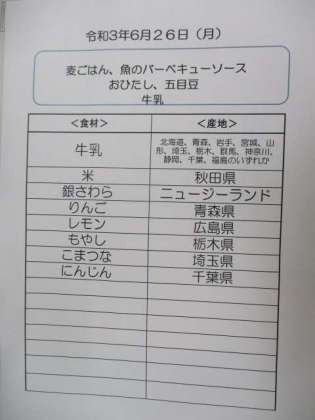 令和3年6月26日（月）
麦ごはん、魚のバーベキューソース
おひたし、五目豆
牛乳
＜食材＞ ＜産地＞
牛乳 北海道、青森、岩手、宮城、山
形、埼玉、栃木、群馬、神奈川、
静岡、千葉、福島のいずれか
米 秋田県
銀さわら ニュージーランド
りんご 青森県
レモン 広島県
もやし 栃木県
こまつな 埼玉県
にんじん 千葉県